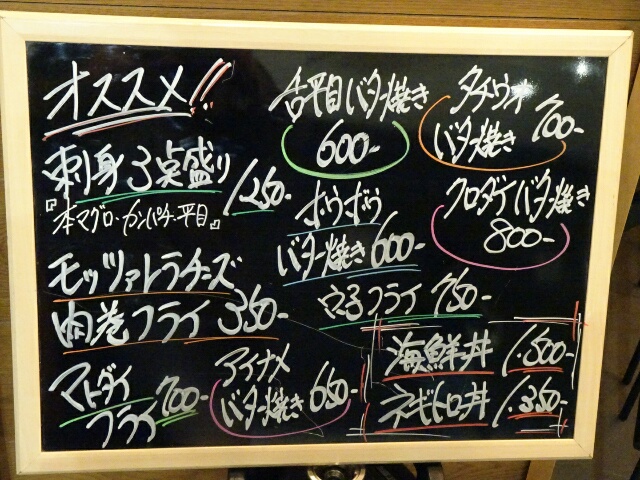 オススメ!!
刺身3点盛り 1,250-
『本マグロ・カンパチ・平目』
モッツァレラチーズ
肉巻フライ 350-
マトダイ
フライ 700-
アイナメ
バター焼き 650-
舌平目バター焼き
600-
ホウボウ
バター焼き 600-
穴子フライ 750-
タチウオ
バター焼き 700-
クロダイバター焼き
800-
海鮮丼 1,500-
ネギトロ丼 1,350-